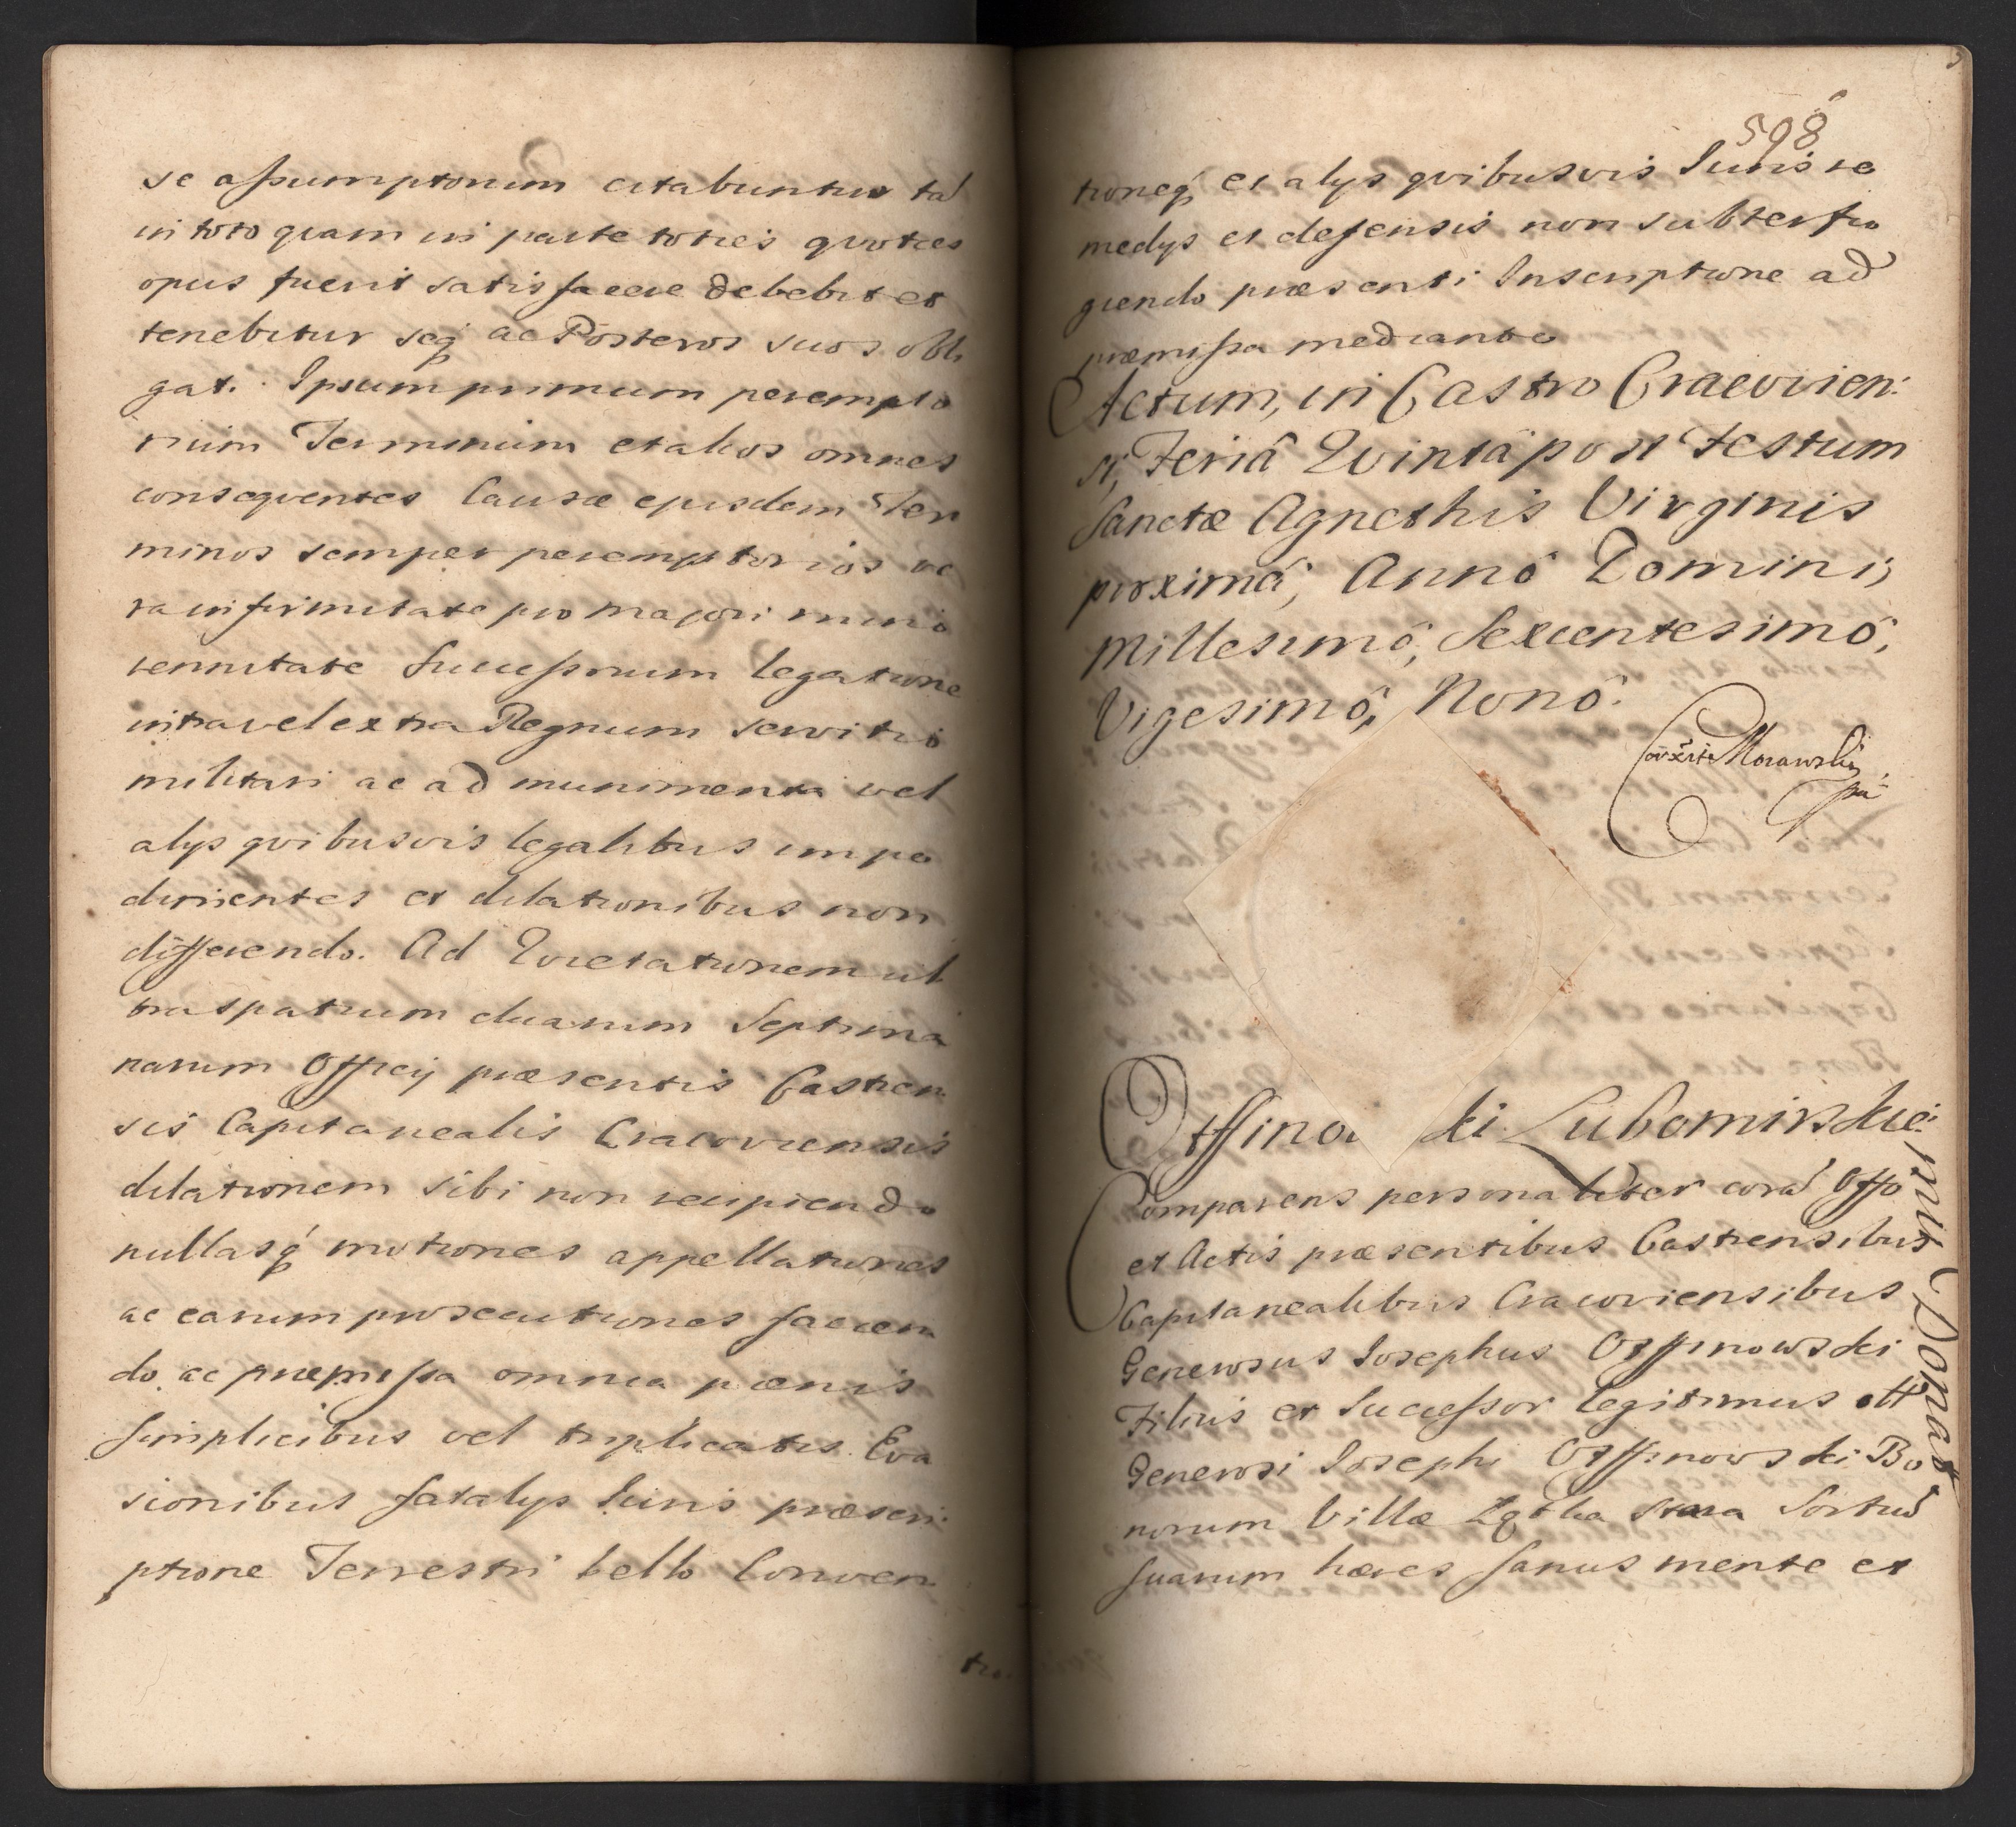 se assumptorum citabuntur tā
in toto quam in parte toties quoties
opus fuerit satisfacere debebit et
tenebitur seq́ ac Posteros suos obli
gat. Ipsum primum perempto
rium Terminum et alios omnes
consequentes Causæ ejusdem Ter
minos semper peremptorios ve
ra infirmitate pro majori mino
rennitate Successorum legatione
intra vel extra Regnum servitio
militari ac ad munimenta vel
alys quibusvis legalibus impe
dimentes et dilationibus non
differendo. Ad Evictationem ul
tra spatium duarum Septima
narum Officij præsentis Castren
sis Capitanealis Cracoviensis
dilationem sibi non recipiendo
nullasq́ motiones appellationes
ac earum prosecutiones facien
do ac præmissa omnia pœnis
simplicibus vel triplicatis Eva
sionibus fatalys Juris præscri
ptione Terrestri bello Conven
tio.
598
tioneq́ et alys quibusvis Juris re
medys et defensis non subterfu
giendo præsenti Inscriptione ad
præmissa mediante
Actum, in Castro Cracovien:
si, Feriâ Qvintâ post Festum
Sanctæ Agnethis Virginis
proximâ, Annô Domini,
Millesimô, Sexcentesimô,
Vigesimô, Nonô.
Morawski
Ossino ki Lubomirskie:
mu Donat
Comparens personaliter corā Offo
et Actis præsentibus Castrensibus
Capitanealibus Cracoviensibus
Generosus Josephus Ossinowski
Filius et Successor legitimus olī
Generosi Josephi Ossinowski Bo
norum Villæ Zgtha Stara Sortiū
suarum hæres sanus mente et